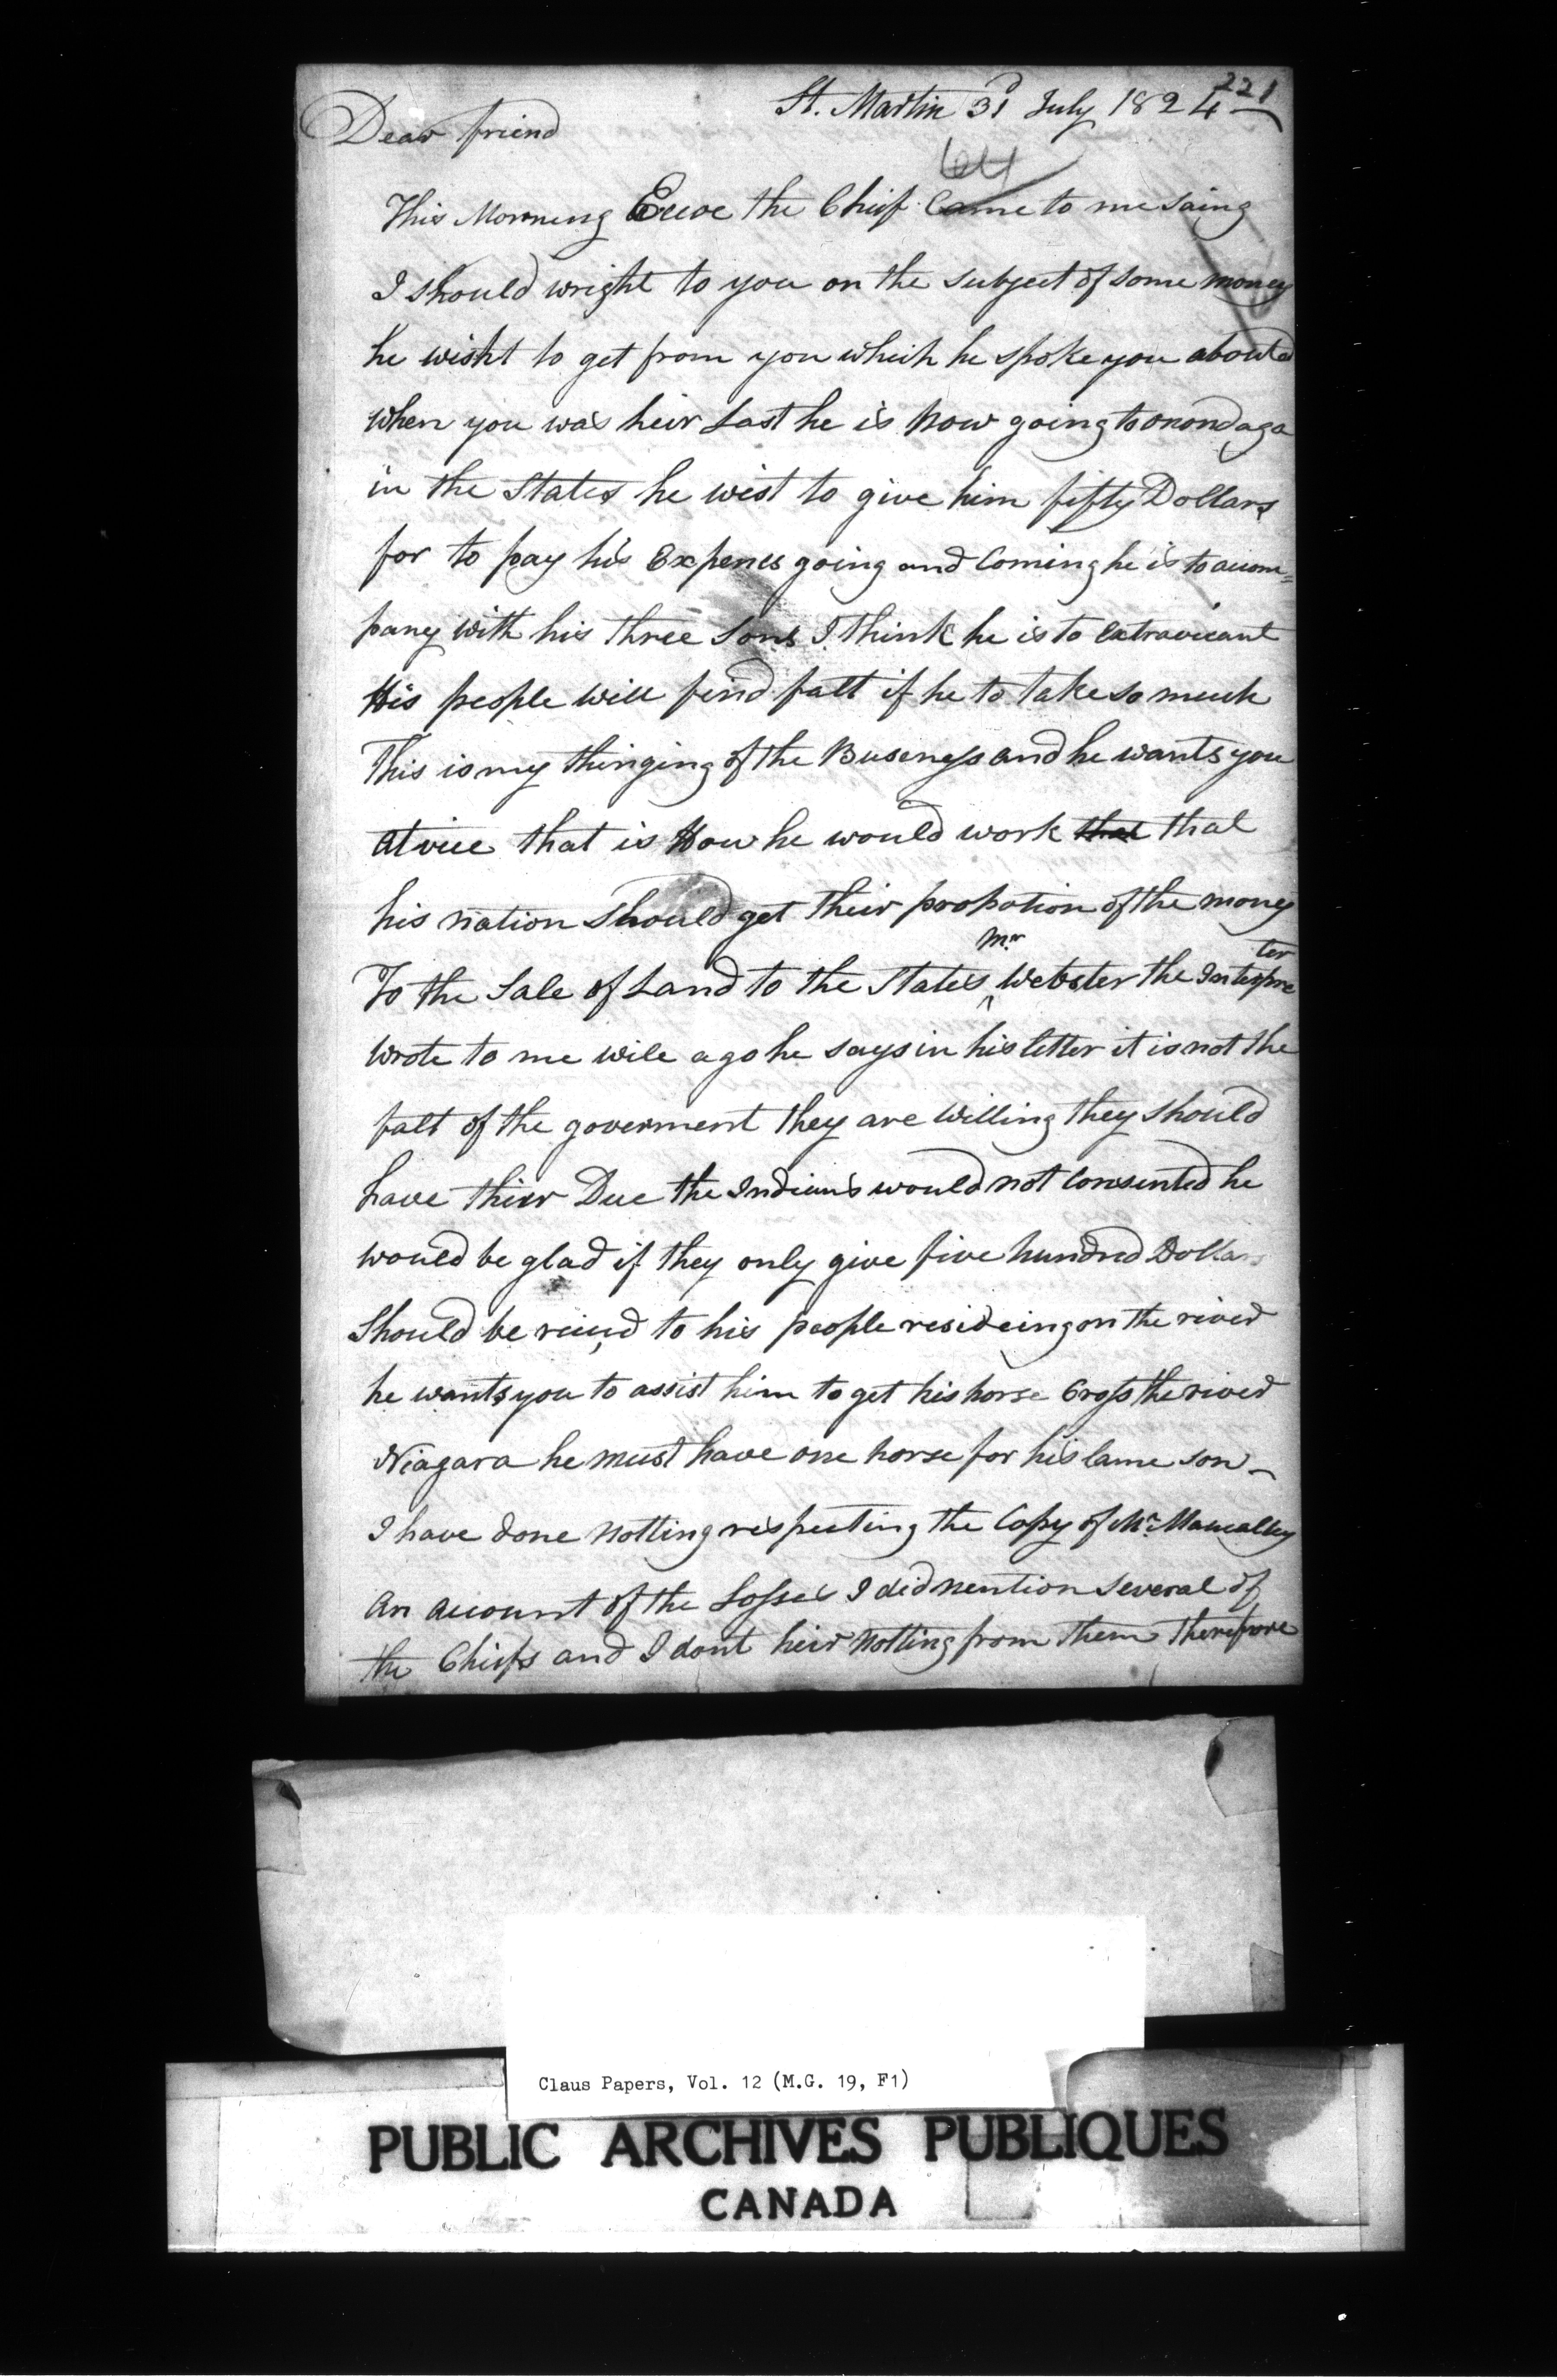 221
St. Martin 31 July 1824
Dear friend
64
This Morning the Chief Came to me saing
I should wright to you on the subject of some money
he wisht to get from you which he spoke you about
when you was heir Last he is Now going to onondaga
in the States he wist to give him fifty Dollars
for to pay his Expenes going and Coming he is to accom=
pany with his three Sons I think he is to extravicant
His people will find falt if he to take so much
This is my thinging of the Buseness and he wants you
atvice that is How he would work that that
his nation should get their propotion of the money
To the Sale of Land to the States Mr Webster the Interpreter
wrote to me wile ago he says in his letter it is not the
falt of the goverment they are willing they should
have thier Due the Indians would not Consented he
would be glad if they only give five hundred Dollars
Should be to his people resideing on the river
he wants you to assist him to get his horse Cross the river
Niagara he must have one horse for his lame son
I have done notting respecting the Copy of Mr.
An account of the Losses I did mention several of
the Chiefs and I dont heir notting from them therefore
Claus Papers, Vol. 12 (M.G. 19, F1)
PUBLIC ARCHIVES PUBLIQUES
CANADA